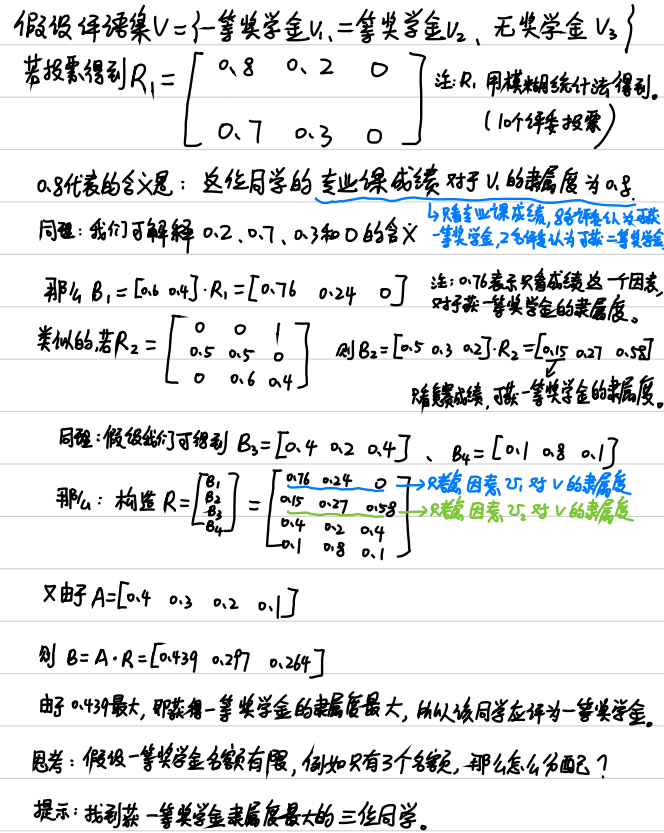 假设评语集V={一等奖学金V₁、二等奖学金V₂、无奖学金V₃}
若投票得到R₁=[0.8 0.2 0
0.7 0.3 0]
注:R₁用模糊统计法得到。
(10个评委投票)
0.8代表的含义是:这位同学的专业课成绩对于V₁的隶属度为0.8.
↳只看专业课成绩,8名评委认为可获
一等奖学金,2名评委认为可获二等奖学金
同理:我们可解释0.2、0.7、0.3和0的含义
那么B₁=[0.6 0.4]·R₁=[0.76 0.24 0]
注:0.76表示只看成绩这一个因素,
对于获一等奖学金的隶属度。
类似的,若R₂=[0 0 1
0.5 0.5 0
0 0.6 0.4]
则B₂=[0.5 0.3 0.2]·R₂=[0.15 0.27 0.58]
只看竞赛成绩,可获一等奖学金的隶属度。
同理:假设我们可得到B₃=[0.4 0.2 0.4]、B₄=[0.1 0.8 0.1]
那么:构造R=[B₁ B₂ B₃ B₄]=[0.76 0.24 0 →只考虑因素U₁对V的隶属度
0.15 0.27 0.58 →只考虑因素U₂对V的隶属度
0.4 0.2 0.4
0.1 0.8 0.1]
又由于A=[0.4 0.3 0.2 0.1]
则B=A·R=[0.439 0.297 0.264]
由于0.439最大,即获得一等奖学金的隶属度最大,所以该同学应评为一等奖学金。
思考:假设一等奖学金名额有限,例如只有3个名额,那么怎么分配?
提示:找到获一等奖学金隶属度最大的三位同学。